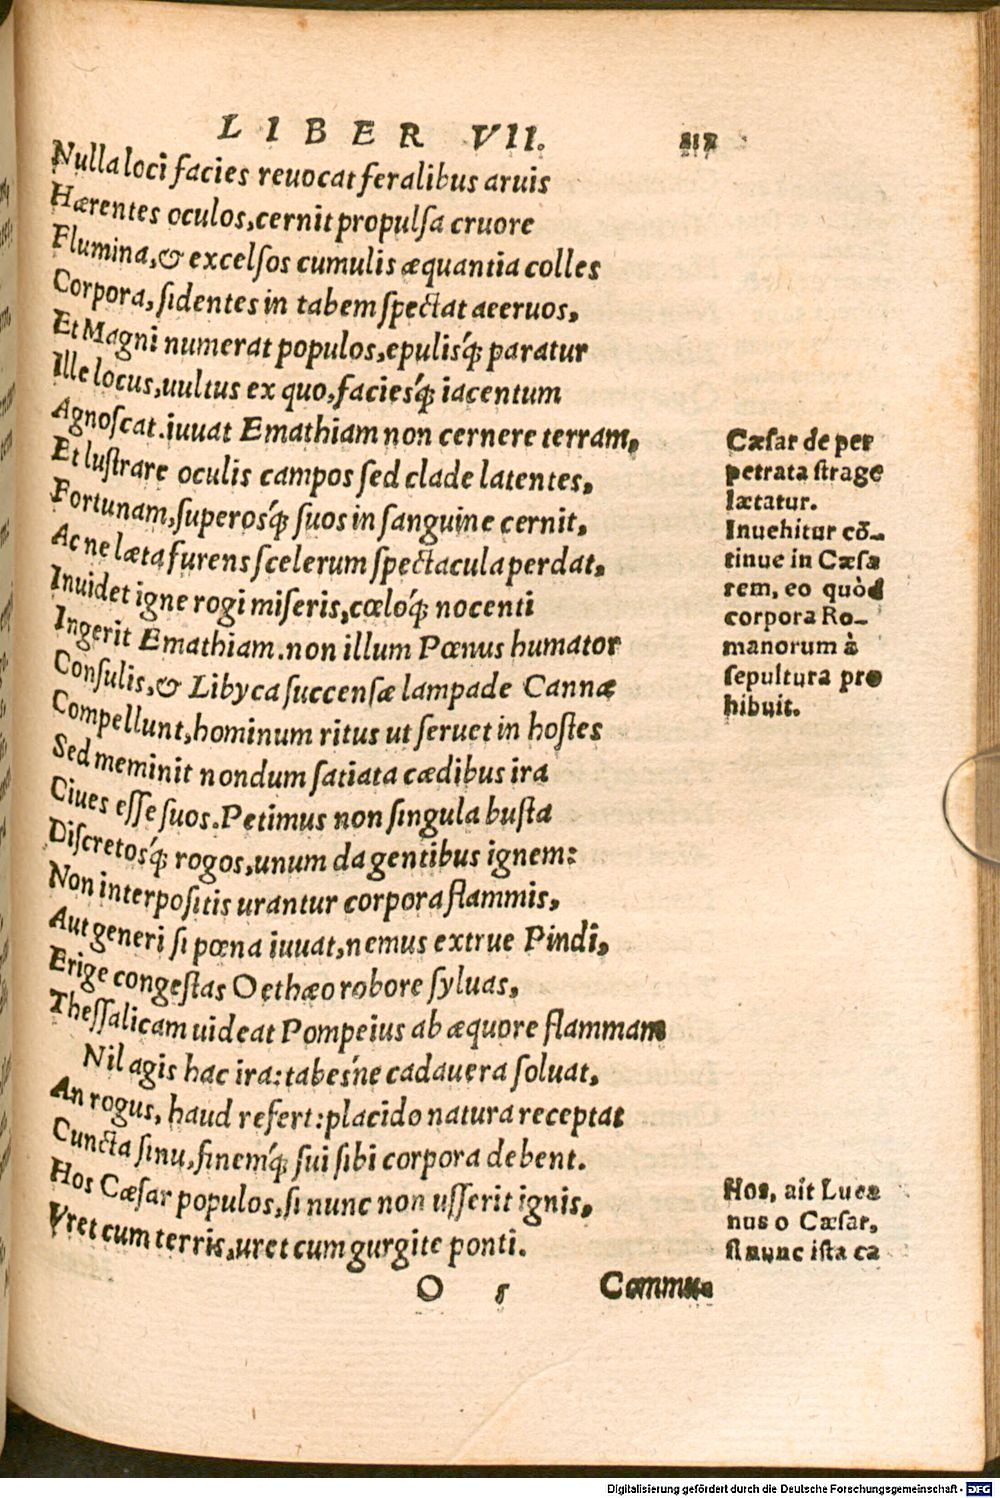 LIBER VII.
Nulla loci facies reuocat feralibus aruis
Hærentes oculos, cernit propulſa cruore
Flumina, & excelſos cumulis æquantia colles
Corpora, ſidentes in tabem ſpectat aceruos,
Et Magni numerat populos, epulisq́; paratur
Ille locus, uultus ex quo, faciesq́; iacentum
Agnoſcat. iuuat Emathiam non cernere terram,
Et luſtrare oculis campos ſed clade latentes,
Fortunam, ſuperosq́; ſuos in ſanguine cernit,
Ac ne læta furens ſcelerum ſpectacula perdat,
Inuidet igne rogi miſeris, cœloq́; nocenti
Ingerit Emathiam. non illum Pœnus humator
Conſulis, & Libyca ſuccenſæ lampade Cannæ
Compellunt, hominum ritus ut ſeruet in hoſtes
Sed meminit nondum ſatiata cædibus ira
Ciues eſſe ſuos. Petimus non ſingula buſta
Diſcretosq́; rogos, unum da gentibus ignem:
Non interpoſitis urantur corpora flammis,
Aut generi ſi pœna iuuat, nemus extrue Pindi,
Erige congeſtas Oethæo robore ſyluas,
Theſſalicam uideat Pompeius ab æquore flammam
Nil agis hac ira: tabesńe cadauera ſoluat,
An rogus, haud refert: placido natura receptat
Cuncta ſinu, finemq́; ſui ſibi corpora debent.
Hos Cæſar populos, ſi nunc non uſſerit ignis,
Vret cum terris, uret cum gurgite ponti.
O 5 Commu-
Cæſar de per
petrata ſtrage
lætatur.
Inuehitur cō-
tinue in Cæſa
rem, eo quòd
corpora Ro-
manorum à
ſepultura pro
hibuit.
Hos, ait Luca
nus o Cæſar,
ſi nunc iſta ca
Digitalisierung gefördert durch die Deutsche Forschungsgemeinschaft - DFG